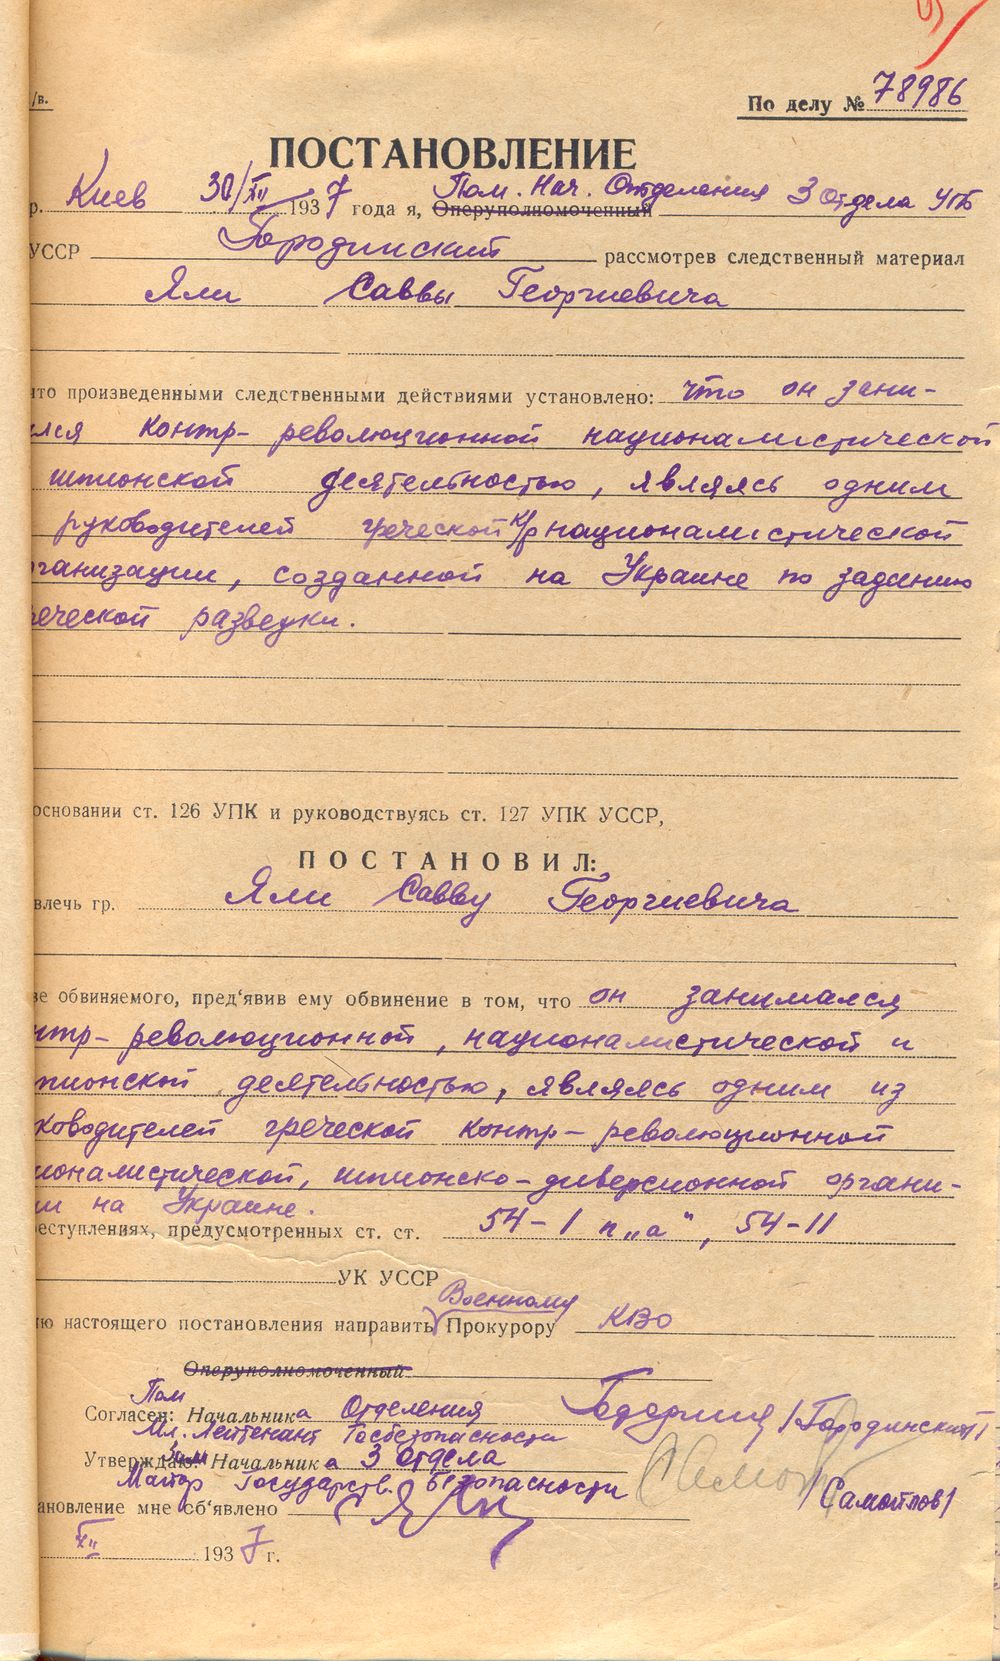 /в.
По делу № 78986
ПОСТАНОВЛЕНИЕ
р. Киев 30/XII 1937 года я, Оперуполномоченный Пом. Нач. Отделения 3 Отдела УГБ
УССР Городинский рассмотрев следственный материал
Яли Саввы Георгиевича
что произведенными следственными действиями установлено: что он зани-
ался контр-революционной националистической
шпионской деятельностью, являясь одним
руководителей греческой к/р националистической
рганизации, созданной на Украине по заданию
реческой разведки.
основании ст. 126 УПК и руководствуясь ст. 127 УПК УССР,
ПОСТАНОВИЛ:
влечь гр. Яли Савву Георгиевича
ве обвиняемого, пред'явив ему обвинение в том, что он занимался
нтр-революционной, националистической и
пионской деятельностью, являясь одним из
ководителей греческой контр-революционной
ионалистической, шпионско-диверсионной органи-
ии на Украине.
реступлениях, предусмотренных ст. ст. 54-1 п„а", 54-11
УК УССР
ию настоящего постановления направить Военному Прокурору КВО
Оперуполномоченный
Пом
Согласен: Начальника Отделения /Городинский/
Мл. Лейтенант Госбезопасности
Утверждаю: Зам Начальника 3 Отдела
Майор Государств. Безопасности /Самойлов/
ановление мне об'явлено
XII 1937 г.